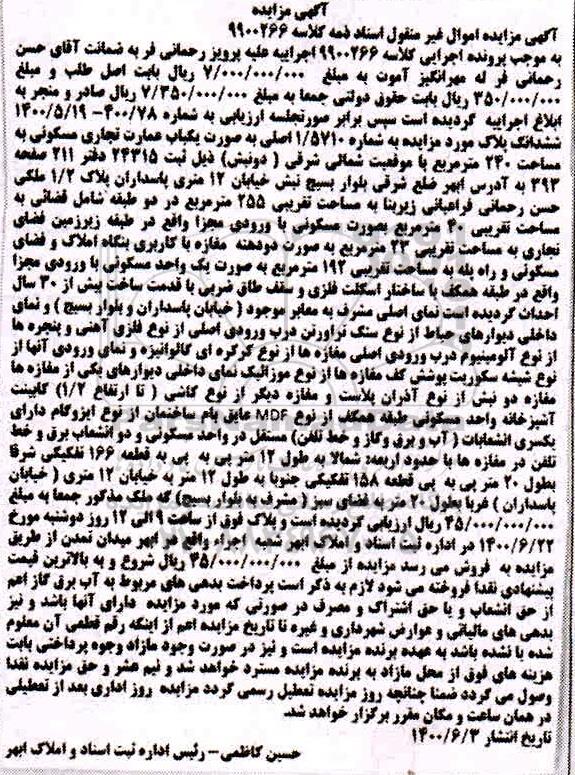 آگهی مزایده
آگهی مزایده اموال غیر منقول اسناد ذمه کلاسه ۹۹۰۰۲۶۶
به موجب پرونده اجرایی کلاسه ۹۹۰۰۲۶۶ اجراییه علیه پرویز رحمانی فر به ضمانت آقای حسن
رحمانی فر له مهرانگیز آموت به مبلغ ۷/۰۰۰/۰۰۰/۰۰۰ ریال بابت اصل طلب و مبلغ
۳۵۰/۰۰۰/۰۰۰ ریال بابت حقوق دولتی جمعا به مبلغ ۷/۳۵۰/۰۰۰/۰۰۰ ریال صادر و منجر به
ابلاغ اجراییه گردیده است سپس برابر صورتجلسه ارزیابی به شماره ۴۰۰/۷۸- ۱۴۰۰/۵/۱۹
ششدانگ پلاک مورد مزایده به شماره ۱/۵۷۱۰ اصلی به صورت یکباب عمارت تجاری مسکونی به
مساحت ۲۴۰ مترمربع با موقعیت شمالی شرقی ( دونبش) ذیل ثبت ۲۴۳۱۵ دفتر ۲۱۱ صفحه
۳۹۳ به آدرس ابهر ضلع شرقی بلوار بسیج نبش خیابان ۱۲ متری پاسداران پلاک ۱/۲ ملکی
حسن رحمانی فراعیانی زیربنا به مساحت تقریبی ۲۵۵ مترمربع در دو طبقه شامل فضائی به
مساحت تقریبی ۴۰ مترمربع بصورت مسکونی با ورودی مجزا واقع در طبقه زیرزمین فضای
تجاری به مساحت تقریبی ۲۳ مترمربع به صورت دودهنه مغازه با کاربری بنگاه املاک و فضای
مسکونی و راه پله به مساحت تقریبی ۱۹۲ مترمربع به صورت یک واحد مسکونی با ورودی مجزا
واقع در طبقه همکف با ساختار اسکلت فلزی و سقف طاق ضربی با قدمت ساخت بیش از ۳۰ سال
احداث گردیده است نمای اصلی مشرف به معابر موجود ( خیابان پاسداران و بلوار بسیج ) و نمای
داخلی دیوارهای حیاط از نوع سنگ تراورتن درب ورودی اصلی از نوع فلزی آهنی و پنجره ها
از نوع آلومینیوم درب ورودی اصلی مغازه ها از نوع کرکره ای گالوانیزه و نمای ورودی آنها از
نوع شیشه سکوریت پوشش کف مغازه ها از نوع موزائیک نمای داخلی دیوارهای یکی از مغازه ها
مغازه دو نبش از نوع آذران پلاست و مغازه دیگر از نوع کاشی ( تا ارتفاع ۱/۲) کابینت
آشپزخانه واحد مسکونی طبقه همکف از نوع MDF عایق بام ساختمان از نوع ایزوگام دارای
یکسری انشعابات ( آب و برق وگاز و خط تلفن) مستقل در واحد مسکونی و دو انشعاب برق و خط
تلفن در مغازه ها با حدود اربعه: شمالا به طول ۱۲ متر پی به پی به قطعه ۱۶۶ تفکیکی شرقا
بطول ۲۰ متر پی به پی قطعه ۱۵۸ تفکیکی جنوبا به طول ۱۲ متر به خیابان ۱۲ متری ( خیابان
پاسداران ) غربا بطول ۲۰ متر به فضای سبز ( مشرف به بلوار بسیج) که ملک مذکور جمعا به مبلغ
۴۵/۰۰۰/۰۰۰/۰۰۰ ریال ارزیابی گردیده است و پلاک فوق از ساعت ۹ الی ۱۲ روز دوشنبه مورخ
۱۴۰۰/۶/۲۲ در اداره ثبت اسناد و املاک ابهر شعبه اجراء واقع در ابهر میدان تمدن از طریق
مزایده به فروش می رسد مزایده از مبلغ ۴۵/۰۰۰/۰۰۰/۰۰۰ ریال شروع و به بالاترین قیمت
پیشنهادی نقدا فروخته می شود لازم به ذکر است پرداخت بدهی های مربوط به آب برق گاز اعم
از حق انشعاب و یا حق اشتراک و مصرف در صورتی که مورد مزایده دارای آنها باشد و نیز
بدهی های مالیاتی و عوارض شهرداری و غیره تا تاریخ مزایده اعم از اینکه رقم قطعی آن معلوم
شده یا نشده باشد به عهده برنده مزایده است و نیز در صورت وجود مازاد وجوه پرداختی بابت
هزینه های فوق از محل مازاد به برنده مزایده مسترد خواهد شد و نیم عشر و حق مزایده نقدا
وصول می گردد ضمنا چنانچه روز مزایده تعطیل رسمی گردد مزایده روز اداری بعد از تعطیلی
در همان ساعت و مکان مقرر برگزار خواهد شد.
تاریخ انتشار ۱۴۰۰/۶/۳
حسین کاظمی – رئیس اداره ثبت اسناد و املاک ابهر